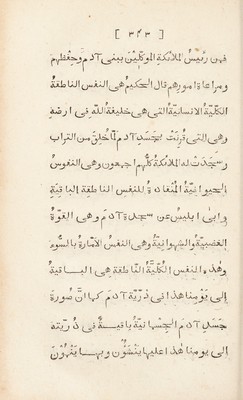 [ ٣٤٣ ]
فمن رئيس الملائكة الموكّلين ببنى آدم وحفظهم
ومراعاة امورهم قال الحكيم هى النفس الناطقة
الكلّيّة الانسانيّة التى هى خليفة اللّه فى ارضه
وهى التى قرنت بجسد آدم لمّا خلق من التراب
وسجدت له الملائكة كلّهم اجمعون وهى النفوس
الحيوانيّة المنقادة للنفس الناطقة الباقية
وابى ابليس عن سجدة آدم وهى القوّة
الغضبيّة والشهوانيّة وهى النفس الامّارة بالسّوء
وهذه النفس الكلّيّة الناطقة هى الباقية
الى يومنا هذا فى ذرّيّة آدم كما انّ صورة
جسد آدم الجسمانيّة باقية فى ذرّيته
الى يومنا هذا عليها ينشؤون وبها ينمون